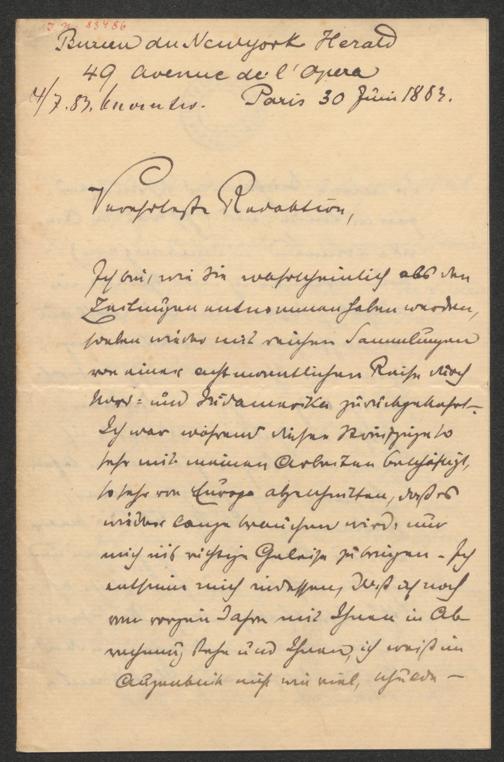 J. N. 83486
Bureau du Newyork Herald
49 avenue de l'Opera
4/7.83. Paris 30 Juni 1883.
Verehrteste Redaktion,
Ich bin, wie Sie wahrscheinlich aus den
Zeitungen entnommen haben werden,
soeben wieder mit reichen Sammlungen
von einer achtmonatlichen Reise durch
Nord- und Südamerika zurückgekehrt.
Ich war während dieser so
sehr mit meinen Arbeiten beschäftigt,
so sehr von Europa abgeschnitten, daß es
wieder lange brauchen wird, um
mich ins richtige Geleise zu bringen. Ich
entsinne mich indessen, daß ich noch
vom vorigen Jahre mit Ihnen in Ab
rechnung stehe und Ihnen, ich weiß im
Augenblick nicht wie viel, schulde –